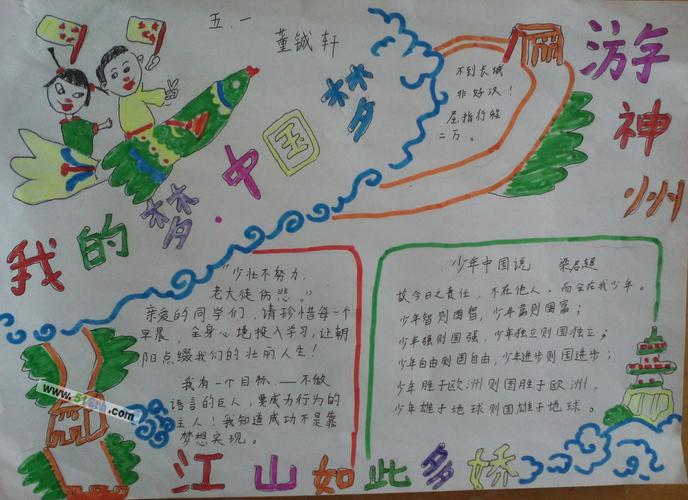 五.一
董铖轩
我的梦·中国梦
游神州
不到长城
非好汉!
屈指行程
二万。
"少壮不努力,
老大徒伤悲。"
亲爱的同学们,请珍惜每一个
早晨,全身心地投入学习,让朝
阳点缀我们的壮丽人生!
我有一个目标,——不做
语言的巨人,要成为行为的
主人!我知道成功不是靠
梦想实现。
少年中国说 梁启超
故今日之责任,不在他人,而全在我少年。
少年智则国智,少年富则国富;
少年强则国强,少年独立则国独立;
少年自由则国自由,少年进步则国进步;
少年胜于欧洲则国胜于欧洲,
少年雄于地球则国雄于地球。
江山如此多娇